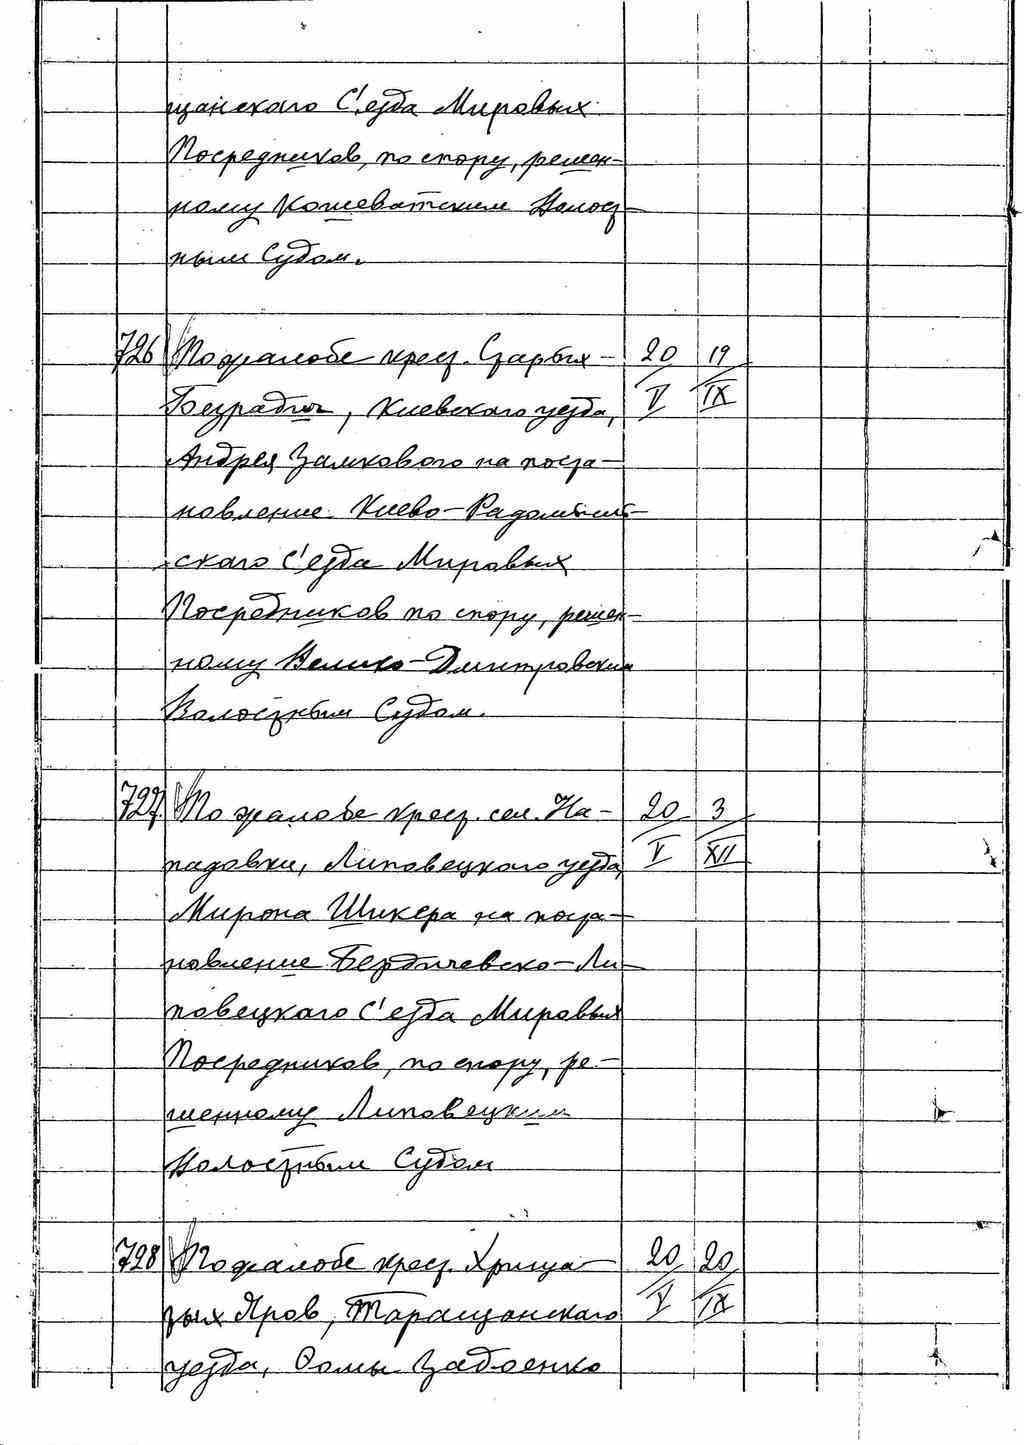 щанского С'езда Мировых
Посредников, по спору, решен-
ному Кошеватским Волост-
ным Судом.
726 По жалобе крест. Старых- 20/V 19/IX
Безрадич, Киевского уезда,
Андрея Замкового на поста-
новление Киево-Радомысль-
ского С'езда Мировых
Посредников по спору, решен-
ному Велико-Дмитровским
Волостным Судом.
727. По жалобе крест. сел. На- 20/V 3/XII
падовки, Липовецкого уезда,
Мирона Шикера на поста-
новление Бердичевско-Ли-
повецкого С'езда Мировых
Посредников, по спору, ре-
шенному Липовецким
Волостным Судом
728 По жалобе крест. Хреща- 20/V 20/IX
тых Яров, Таращанского
уезда, Фомы Забоенко